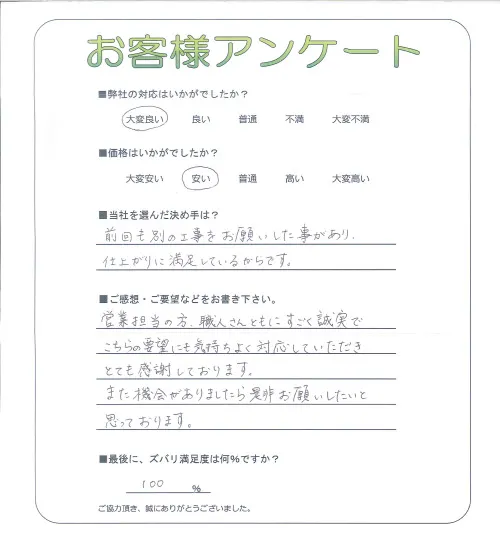 お客様アンケート
■弊社の対応はいかがでしたか？
大変良い 良い 普通 不満 大変不満
■価格はいかがでしたか？
大変安い 安い 普通 高い 大変高い
■当社を選んだ決め手は？
前回も別の工事をお願いした事があり、
仕上がりに満足しているからです。
■ご感想・ご要望などをお書き下さい。
営業担当の方、職人さんともにすごく誠実で
こちらの要望にも気持ちよく対応していただき
とても感謝しております。
また機会がありましたら是非お願いしたいと
思っております。
■最後に、ズバリ満足度は何％ですか？
100 ％
ご協力頂き、誠にありがとうございました。